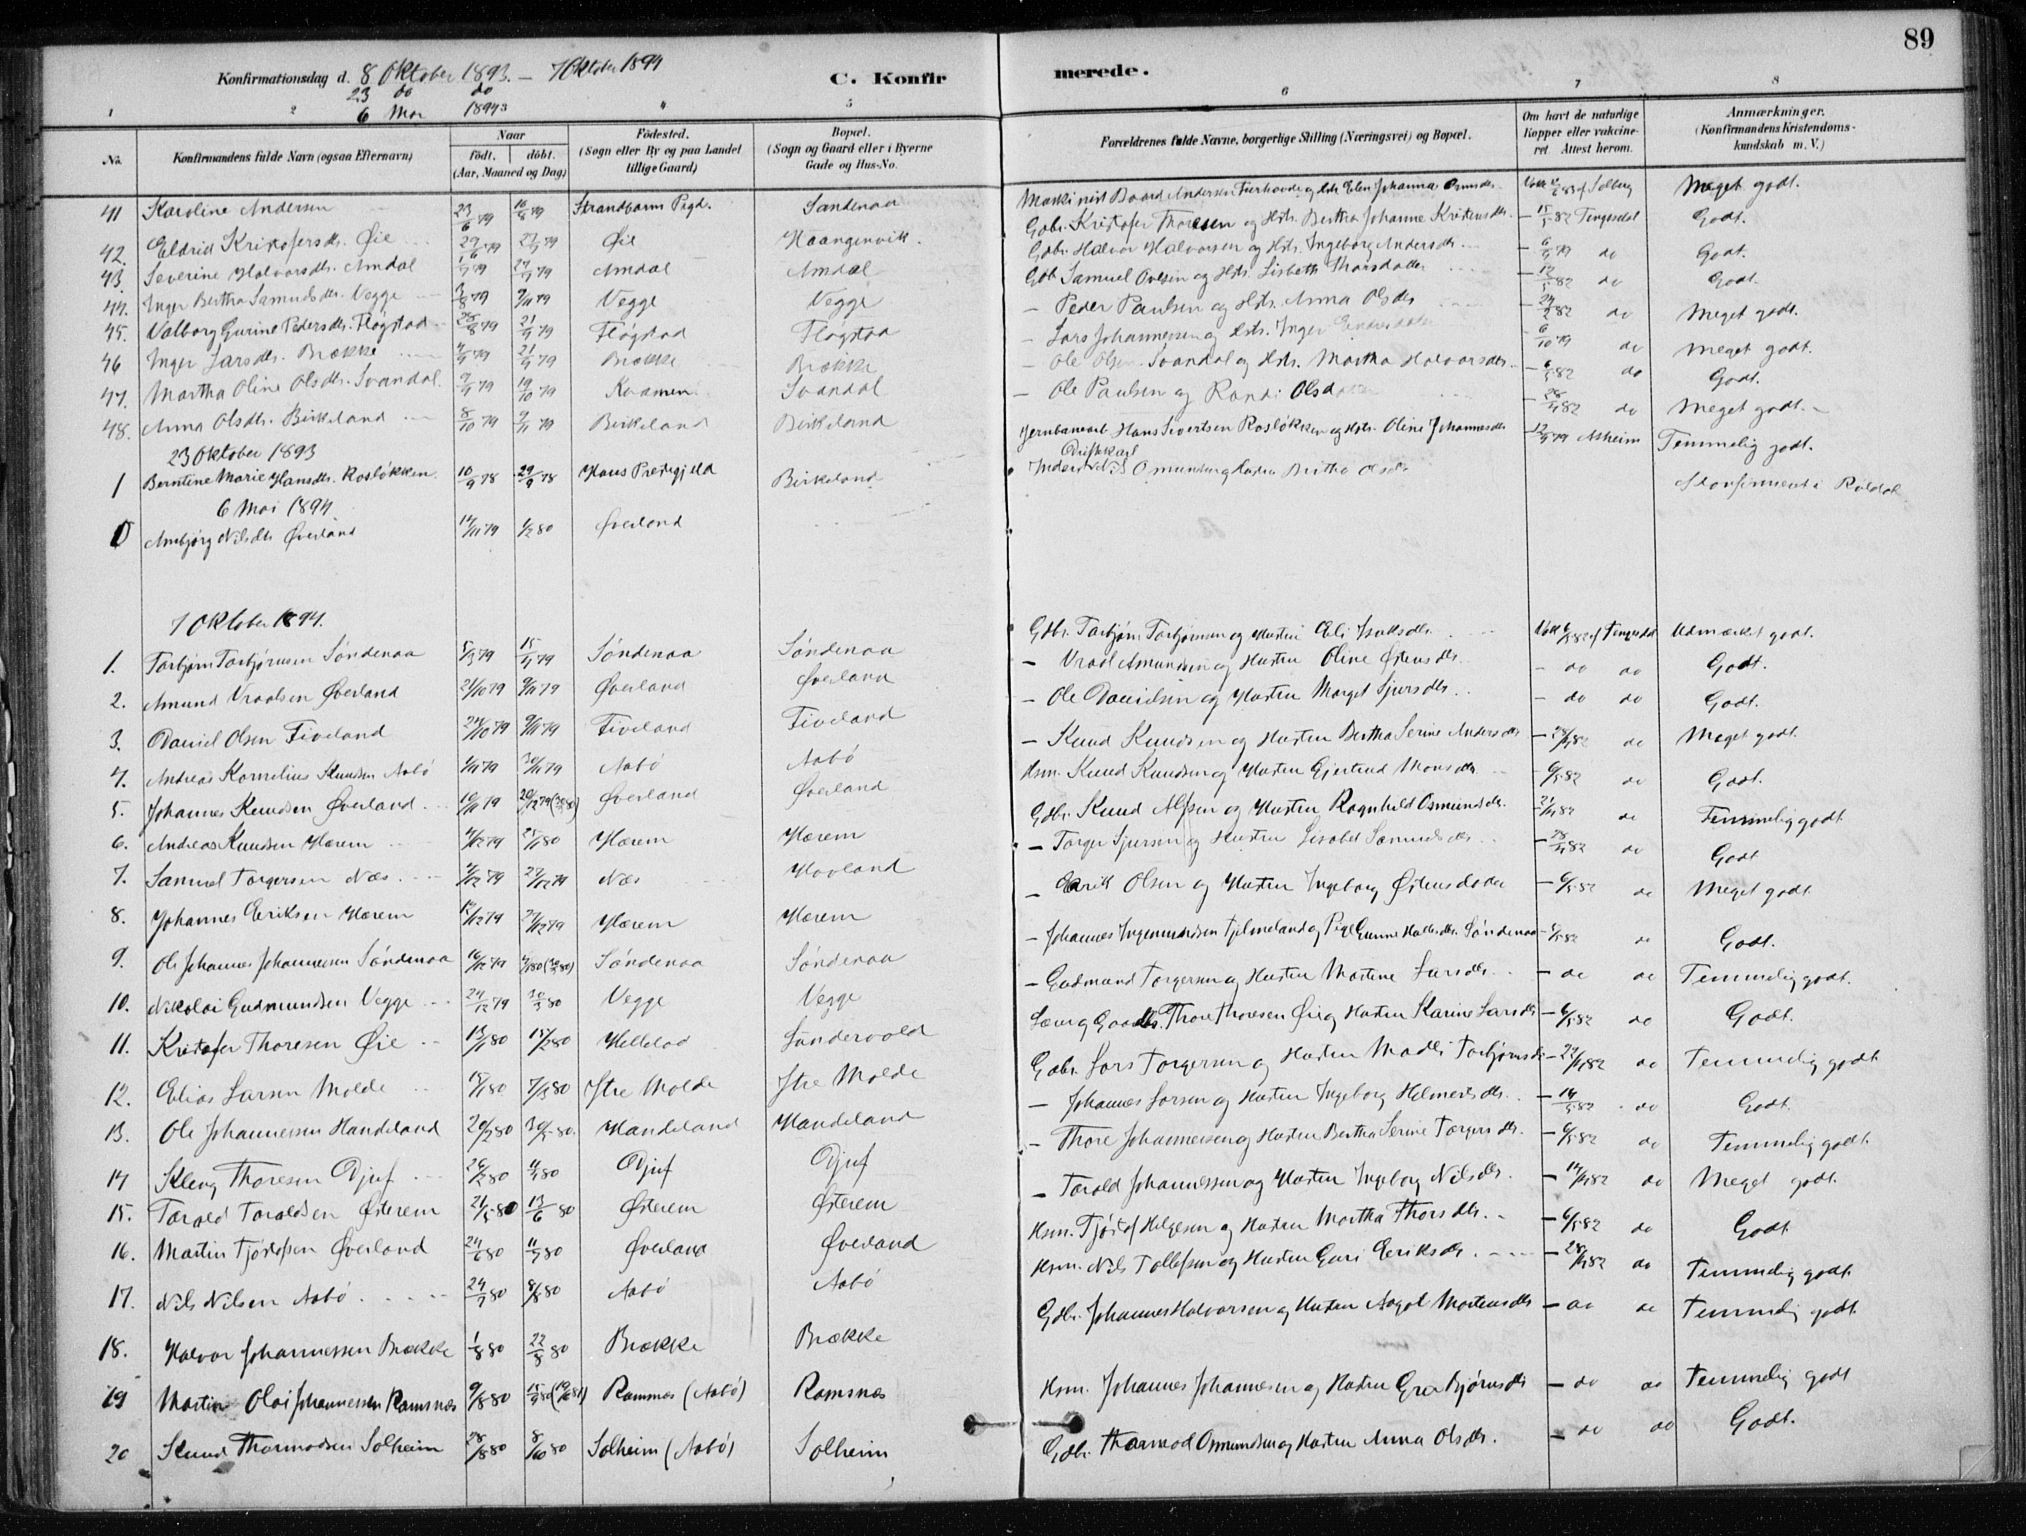 89
Konfirmationsdag d. 8 Oktober 1893. – 7 Oktober 1894
23 do do
6 Mai 1894
C. Konfirmerede.
1 2 5 6 7 8
No. Konfirmandens fulde Navn (ogsaa Efternavn) Naar født. døbt. (Aar, Maaned og Dag) Fødested. (Sogn eller By og paa Landet tillige Gaard) Bopæl. (Sogn og Gaard eller i Byerne Gade og Hus-No. Forældrenes fulde Navne, borgerlige Stilling (Næringsvei) og Bopæl. Om havt de naturlige Kopper eller vaccineret. Attest herom. Anmærkninger. (Konfirmandens Kristendomskundskab m. V.)
41 Karoline Andersen 23/6 79 10/8 79 Strandbarm Pgd. Søndenaa Maskinist Baard Andersen og Hstr. Elen Johanna Meget godt.
42. Eldrid Kristofersdtr. Øie 79 79 Øie Haangenvik. Gbr. Kristofer Thoresen og Hstr. Bertha Johanne Kristensdtr. – 15/5 82 Tengesdal Godt.
43. Severine Halvorsdtr. Amdal 79 79 Amdal Amdal Gbr. Halvor Halvorsen og Hstr. Ingeborg Andersdtr. 79 do Godt.
44. Inger Bertha Samuelsdtr. Vegge 3/8 79 9/11 79 Vegge Vegge Gdb. Samuel Ovesen og Hstr. Lisbeth Thorsdatter – 12/5 82 do Godt.
45. Valborg Gurine Pedersdtr. Fløgstad 28/8 79 21/9 79 Fløgstad Fløgstad – Peder Paulsen og Hstr. Anna Olsdtr – 82 do Meget godt.
46 Inger Larsdtr. Brække 4/9 79 21/9 79 Brække Brække – Lars Johannessen og Hstr. Inger – 6/10 79 do Meget godt.
47. Martha Oline Olsdtr. Svandal 9/9 79 19/10 79 Kvamen Svandal – Ole Olsen Svandal og Hstr. Martha Halvorsdtr. – 6/5 82 do Godt.
48. Anna Olsdtr. Birkeland 8/10 79 9/11 79 Birkeland Birkeland – Ole Paulsen og Randi Olsdatter – 82 do Meget godt.
23 Oktober 1893
1 Berntine Marie Hansdtr. Rosløkken 10/9 78 29/9 78 Hans Prestegjeld Birkeland Jernbanearb. Hans Sivertsen Rosløkken og Hstr. Oline Johannesdtr – 12/9 79 Asheim Temmelig godt.
6 Mai 1894.
0 Ambjørg Nilsdtr Øverland 14/11 79 1/2 80 Øverland Nils Omundsen Bertha Olsdtr Konfirmeret i Røldal
7 Oktober 1894.
1. Torbjørn Torbjørnsen Søndenaa 5/3 79 15/4 79 Søndenaa Søndenaa Gdbr. Torbjørn Torbjørnsen og Hustru Eli Isaksdtr. Vakc. 6/5 82 af Tengesdal Udmærket godt.
2. Amund Vraalsen Øverland 21/10 79 9/11 79 Øverland Øverland – Vraal Amundsen og Hustru Oline Østensdtr. – do do Godt.
3. Daniel Olsen Fiveland 24/10 79 9/11 79 Fiveland Fiveland – Ole Danielsen og Hustru Marget Sjursdtr. – do do Godt.
4. Andreas Kornelius Knudsen Aabø 1/11 79 30/11 79 Aabø Aabø – Knud Knudsen og Hustru Bertha Serine Andersdtr – 28/4 82 do Meget godt.
5. Johannes Knudsen Øverland 10/11 79 20/12 79 Øverland Øverland Hsm. Knud Knudsen og Hustru Gjertrud Monsdtr – 6/5 82 do Godt.
6. Andreas Knudsen Hærem 4/12 79 80 Hærem Hærem Gdbr. Knud Alfsen og Hustru Ragnhild Osmundsdtr. 82 do Temmelig godt
7. Samuel Torgersen Næs 4/12 79 27/12 79 Næs Hovland – Torger Sjursen og Hustru Lisabet Samuelsdtr – 28/4 82 do Godt
8. Johannes Eeriksen Hærem 12/12 79 27/12 79 Hærem Hærem – Eerik Olsen og Hustru Ingeborg Østensdatter – 6/5 82 do Meget godt.
9. Ole Johannes Johannessen Søndenaa 16/12 79 80 Søndenaa Søndenaa – Johannes Ingemundsen Fjelmeland og Pige Gunne Søndenaa 82 do Godt.
10. Nikolai Gudmundsen Vegge 24/12 79 30/3 80 Vegge Vegge – Gudmund Torgersen og Hustru Martine Larsdtr. – do do Temmelig godt.
11. Kristofer Thoresen Øie 13/1 80 15/2 80 Hellelad Søndervold Thore Thoresen Øie og Hustru Karine Larsdtr – 6/5 82 do Godt.
12. Elias Larsen Molde 15/1 80 7/3 80 Itre Molde Itre Molde Gdbr. Lars Torgersen og Hustru Madli Torbjørnsdtr – 82 do Temmelig godt
13. Ole Johannessen Handeland 20/2 80 30/5 80 Handeland Handeland – Johannes Larsen og Hustru Ingeborg Helmersdtr. – 14/5 82 do Godt.
14 Kleng Thoresen Djuf 26/2 80 11/4 80 Djuf Djuf – Thore Johannessen og Hustru Bertha Serine Torgersdtr. – 6/5 82 do Temmelig godt.
15. Torald Toraldsen Østerem 21/5 80 13/6 80 Østerem Østerem – Torald Johannessen og Hustru Ingeborg Nilsdtr. – 82 do Meget godt.
16. Martin Tjøstofsen Øverland 24/6 80 11/7 80 Øverland Øverland Hsm. Tjøstof Helgesen og Hustru Martha Thorsdtr. – 6/5 82 do Godt
17. Nils Nilsen Aabø 24/7 80 8/8 80 Aabø Aabø Hsm. Nils Tollefsen og Hustru Guri Eeriksdtr. – 28/4 82 do Temmelig godt.
18. Halvor Johannessen Brække 1/8 80 22/8 80 Brække Brække Gdbr. Johannes Halvorsen og Hustru Aagot Mortensdtr – do do Temmelig godt.
19 Martin Olai Johannessen Ramsnæs 9/8 80 15/9 80 Ramnæs (Aabø) Ramsnæs Hsm. Johannes Johannesen og Hustru Bjørnsdtr – do do Temmelig godt
20 Knud Thormodsen Solheim 28/8 80 8/10 80 Solheim (Aabø) Solheim Gdbr. Thormod Osmundsen og Hustru Anna Olsdtr. – do do Godt.